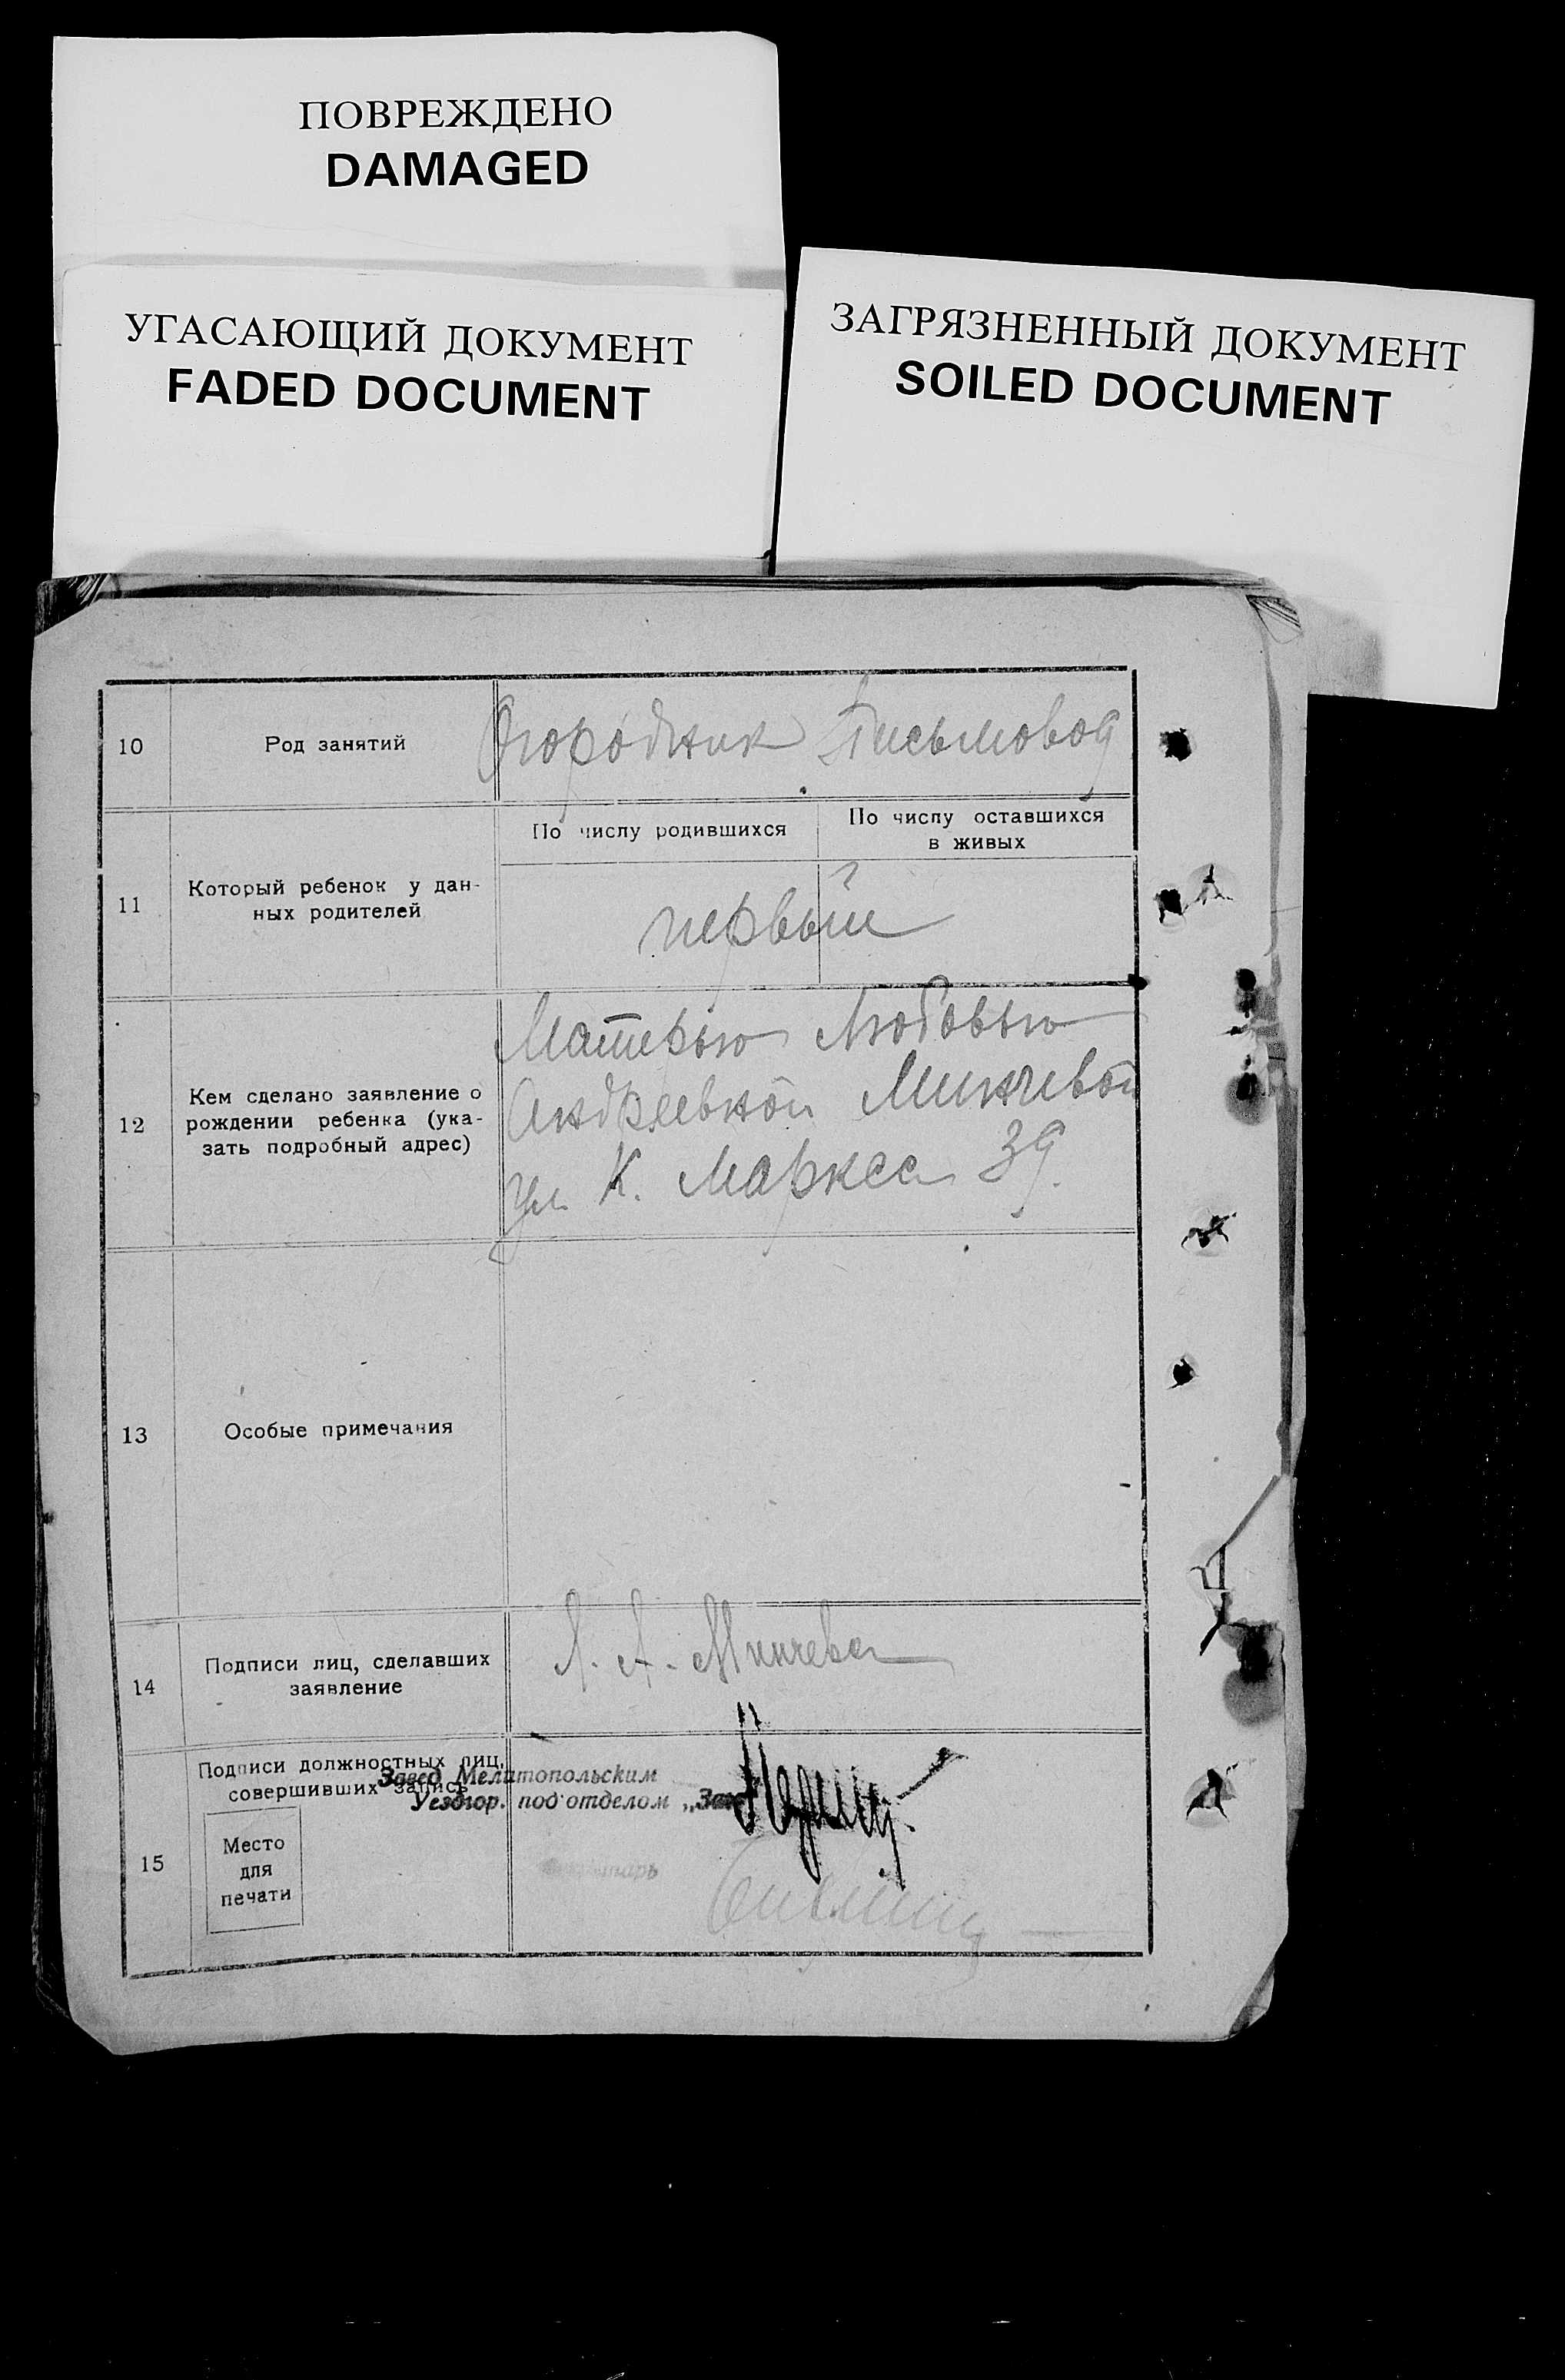 ПОВРЕЖДЕНО
DAMAGED
УГАСАЮЩИЙ ДОКУМЕНТ
FADED DOCUMENT
ЗАГРЯЗНЕННЫЙ ДОКУМЕНТ
SOILED DOCUMENT
10 Род занятий Огородник Письмовод
По числу родившихся
По числу оставшихся
в живых
11 Который ребенок у дан-
ных родителей
первый
12 Кем сделано заявление о
рождении ребенка (ука-
зать подробный адрес)
Матерью Любовью
Андреевной Минчевой
ул К. Маркса 39.
13 Особые примечания
14 Подписи лиц, сделавших
заявление
Л. А. Минчева
15 Подписи должностных лиц,
совершивших запись
Завед Мелитопольским
Уездгор. под'отделом
Место
для
печати